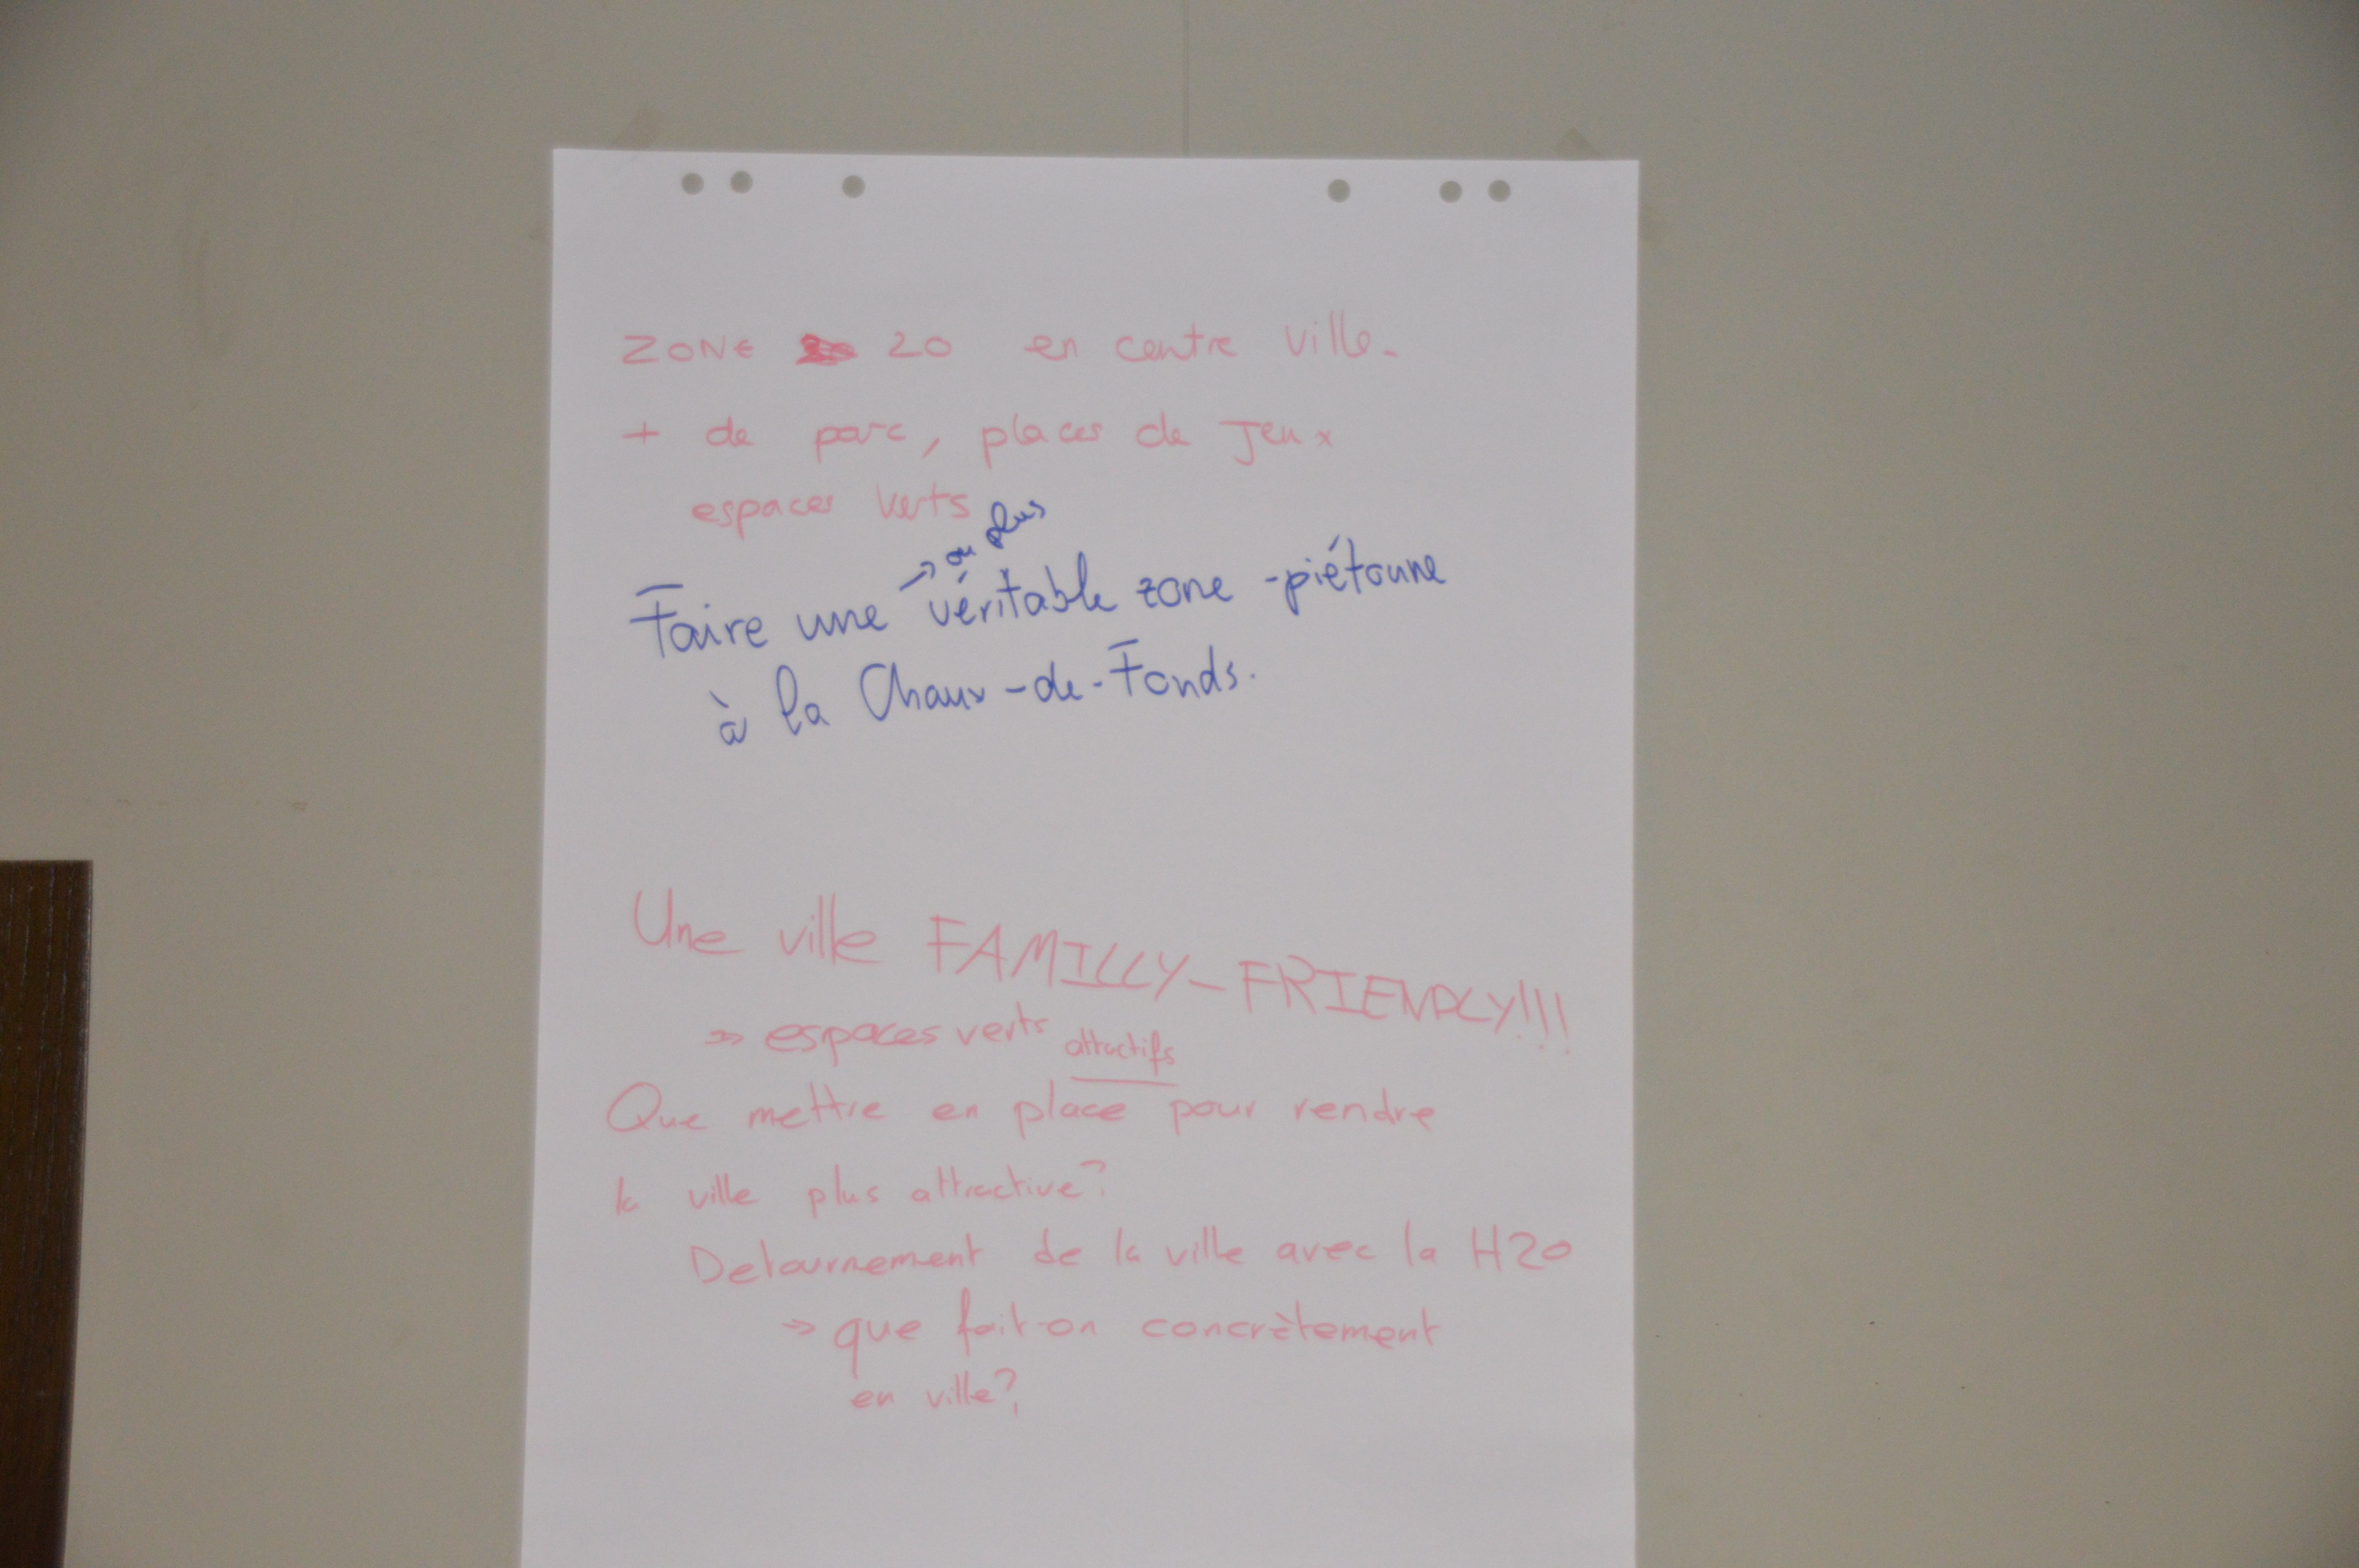 ZONE 20 en centre ville.
+ de parc, places de Jeux
espaces verts
→ ou plus
Faire une véritable zone-piétonne
à la Chaux-de-Fonds.
Une ville FAMILLY-FRIENDLY!!!
⇒ espaces verts attractifs
Que mettre en place pour rendre
la ville plus attractive?
Detournement de la ville avec la H20
→ que fait-on concrètement
en ville?